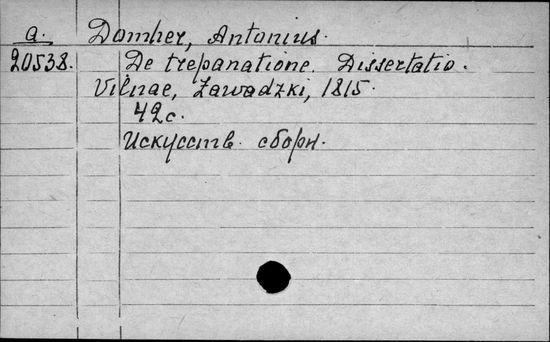 a. Domher, Antonius.
20538. De trepanatione. Dissertatio.
Vilnae, Zawadzki, 1815.
42 с.
Искусств. сборн.